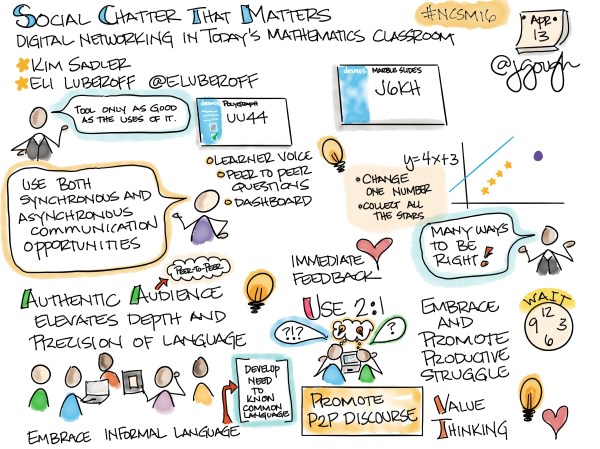 Social Chatter That Matters
Digital Networking in Today's Mathematics Classroom
#NCSM16
APR
13
@jgough
Kim Sadler
Eli Luberoff @eluberoff
Tool only as good
as the uses of it.
desmos Polygraph
UU44
desmos Marble Slides
J6KH
Learner voice
Peer to peer
questions
Dashboard
y=4x+3
Change
one number
Collect all
the stars
Use both
synchronous and
asynchronous
communication
opportunities
Many ways
to be
right!
Immediate
Feedback
Peer-to-Peer
Authentic Audience
elevates depth and
precision of language
Use 2:1
?!?
?
Embrace
and
Promote
Productive
Struggle
WAIT
12
9 3
6
Develop
need
to
know
common
language
Promote
P2P Discourse
Value
Thinking
Embrace informal language